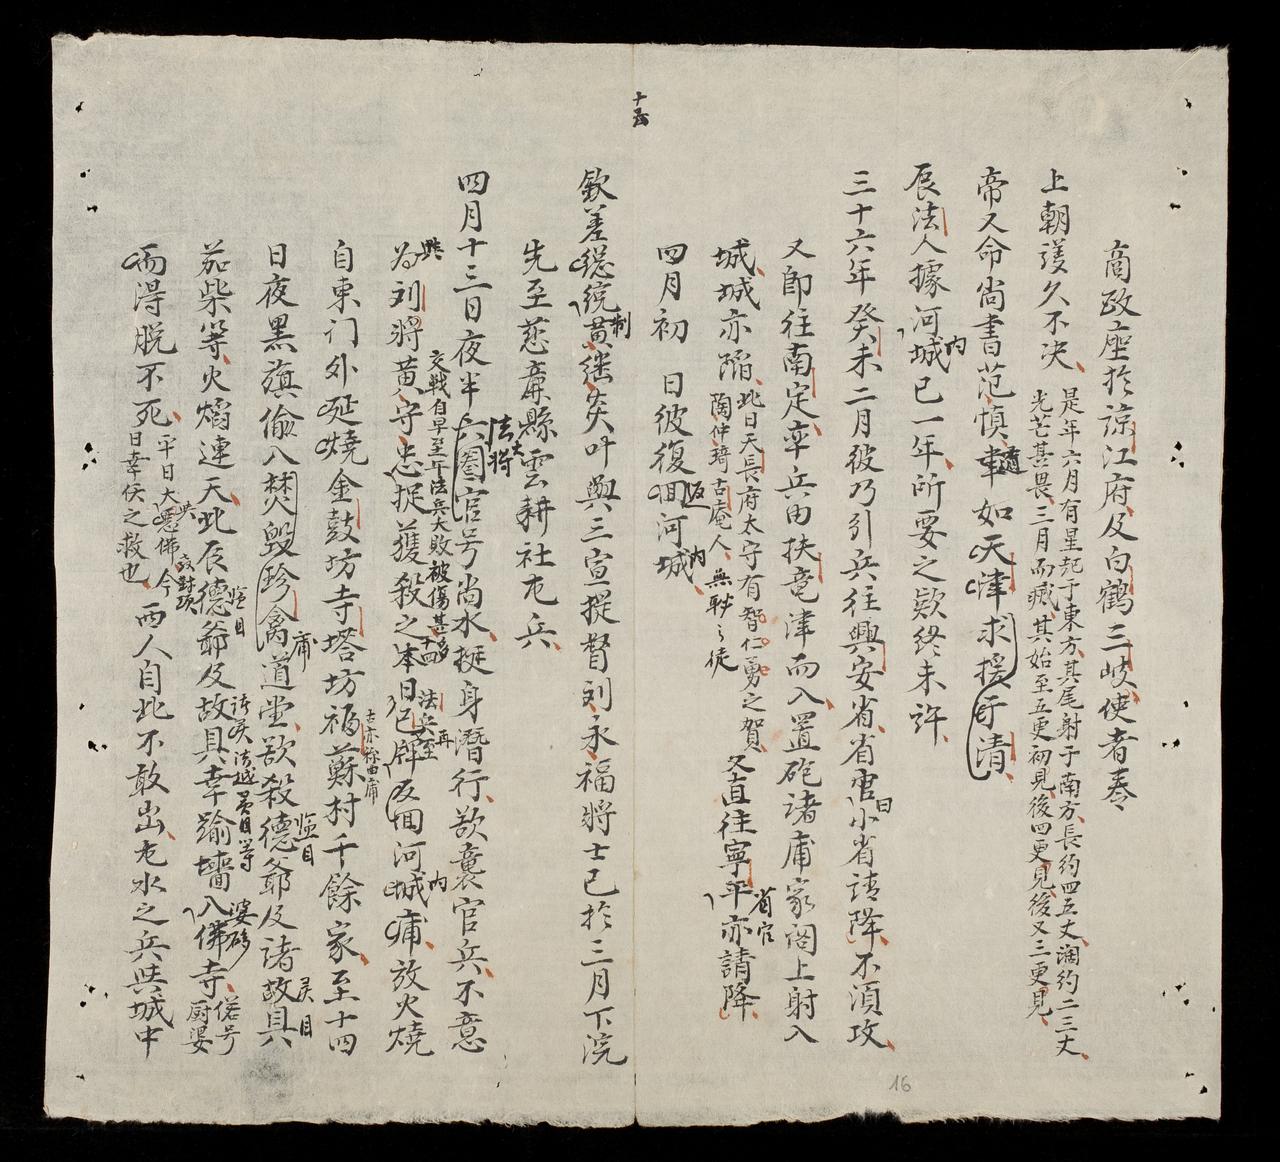 十五
商政座於諒江府及白鶴三岐使者奏
上朝護久不决 是年六月有星起于東方其尾射于南方長約四五丈濶約二三丈
光芒甚畏三月而臧其始至五更初見後四更見後又三更見
帝又命尚書范慎遹聿如天津求援于清
辰法人據河内城已一年所要之欵終未許
三十六年癸未二月彼乃引兵往興安省省官曰小省請降不湏攻
又即往南定率兵由扶竜津而入置砲諸庯家閣上射入
城城亦陷 此日天長府太守有智仁勇之賀
陶仲琦古庵人 無耺之徒
又直往寧平省官亦請降
四月初 日彼復回返河内城
欽差總統制黄継炎叶與三宣提督刘永福將士已於三月下浣
先至慈廉縣雲耕社屯兵
四月十三日夜半法大將六圈官号尚水挺身潛行欲襲官兵不意
為與刘將黄守忠捉獲殺之 交戰自早至午法兵大敗被傷甚多
本日已牌返回河内城庯放火燒
法兵再至
十四
自東门外延燒金鼓坊寺塔坊福蘇村千餘家至十四
古亦称由庯
日夜黑旗偷入焚毀珍禽庯道堂欲殺德爺及諸故具
监目
灵目
茄柴等火熖連天此辰德爺监目及故具幸踰墻入佛寺
婆砂
偌号厨婆
而淂脱不死 平日大與憊佛今
日幸仸之救也
两人自此不敢出屯水之兵與城中
16